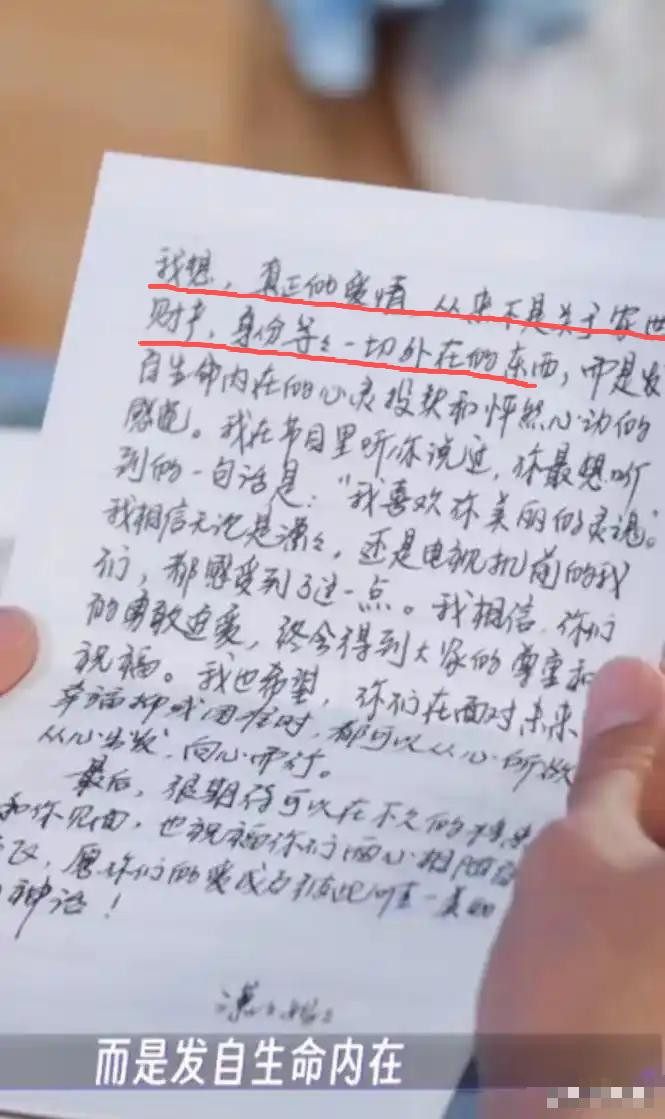 我想，真正的爱情，从来不是关于家世
财产，身份等等一切外在的东西，而是发
自生命内在的心灵投契和怦然心动的
感道。我在节目里听你说过，你最想听
到的一句话是：“我喜欢你美丽的灵魂。”
我相信无论是潇々，还是电视机前的我
们，都感受到了这一点。我相信，你们
的勇敢追爱，终会得到大家的尊重和
祝福。我也希望，你们在面对未来
幸福抑或困难时，都可以从心所欲
从心出发，向心而行。
最后，很期待可以在不久的将来
和你见面，也祝福你们两心相
，愿你们的爱成为彼此唯一美的
神话！
而是发自生命内在